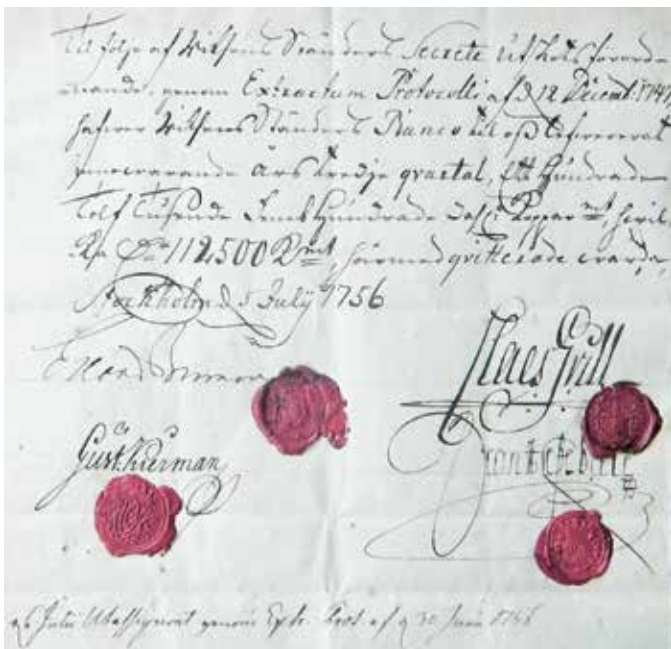 Til följe af Riksens Ständers Secrete Utskots förord-
nande, genom Extractum Protocolli af d 12 Decemb: 1747
hafwer Riksens Ständers Banco til oss lefwererat
innewarande Års tredje qvartal, Ett Hundrade
Tolf Tusende Femhundrade Dahl: Koppar mt,
112,500 K mt, hwarmed qvitterade warda,
Stockholm d 5 July 1756
Claes Grill
Gust. Kierman
genom Extr. Prot. af d 30 Juni 1756